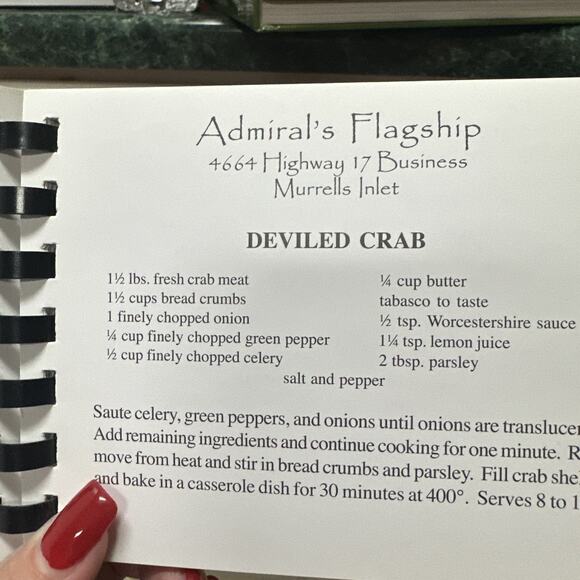 Admiral's Flagship
4664 Highway 17 Business
Murrells Inlet
DEVILED CRAB
1½ lbs. fresh crab meat
1½ cups bread crumbs
1 finely chopped onion
¼ cup finely chopped green pepper
½ cup finely chopped celery
¼ cup butter
tabasco to taste
½ tsp. Worcestershire sauce
1¼ tsp. lemon juice
2 tbsp. parsley
salt and pepper
Saute celery, green peppers, and onions until onions are
Add remaining ingredients and continue cooking for one minute.
move from heat and stir in bread crumbs and parsley. Fill crab
and bake in a casserole dish for 30 minutes at 400°. Serves 8 to